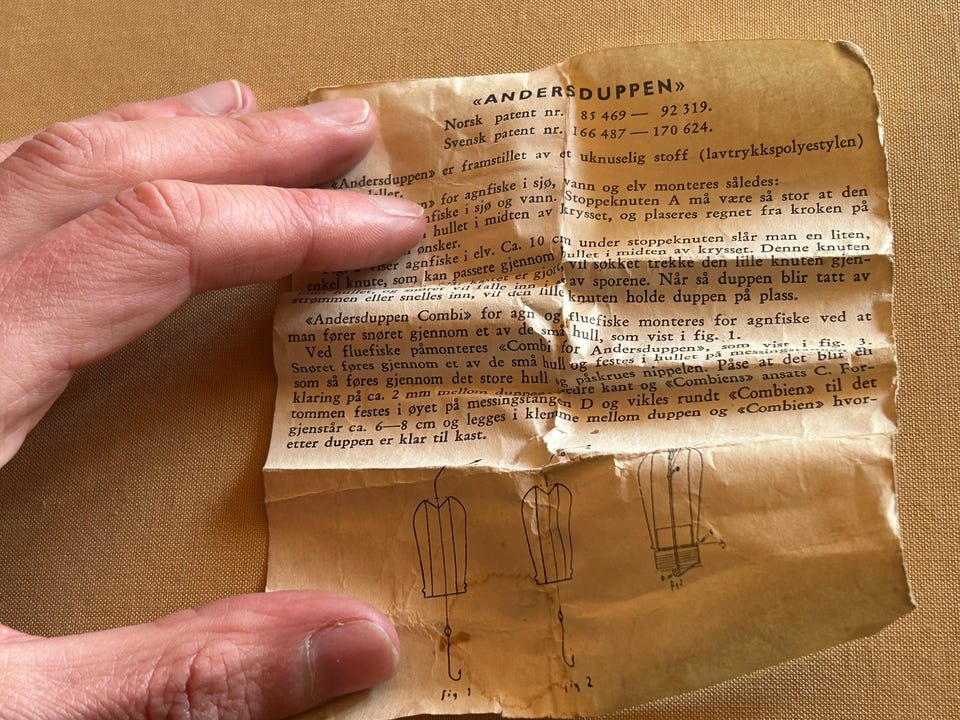 «ANDERSDUPPEN»
Norsk patent nr. 85 469 — 92 319.
Svensk patent nr. 166 487 — 170 624.
«Andersduppen» er framstillet av et uknuselig stoff (lavtrykkspolyestylen)
for agnfiske i sjø, vann og elv monteres således:
fiske i sjø og vann. Stoppeknuten A må være så stor at den
hullet i midten av krysset, og plaseres regnet fra kroken på
ønsker.
viser agnfiske i elv. Ca. 10 cm under stoppeknuten slår man en liten,
enkel knute, som kan passere gjennom hullet i midten av krysset. Denne knuten
er gjort, vil søkket trekke den lille knuten gjen-
hullet, og snøret vil falle inn i av sporene. Når så duppen blir tatt av
strømmen eller snelles inn, vil den lille knuten holde duppen på plass.
«Andersduppen Combi» for agn og fluefiske monteres for agnfiske ved at
man fører snøret gjennom et av de små hull, som vist i fig. 1.
Ved fluefiske påmonteres «Combi for Andersduppen», som vist i fig. 3.
Snøret føres gjennom et av de små hull og festes i hullet på
som så føres gjennom det store hull og påskrues nippelen. Påse at det blir en
klaring på ca. 2 mm mellom kant og «Combiens» ansats C. For-
tommen festes i øyet på messingstangen D og vikles rundt «Combien» til det
gjenstår ca. 6—8 cm og legges i klemme mellom duppen og «Combien» hvor-
etter duppen er klar til kast.
fig 1
fig 2